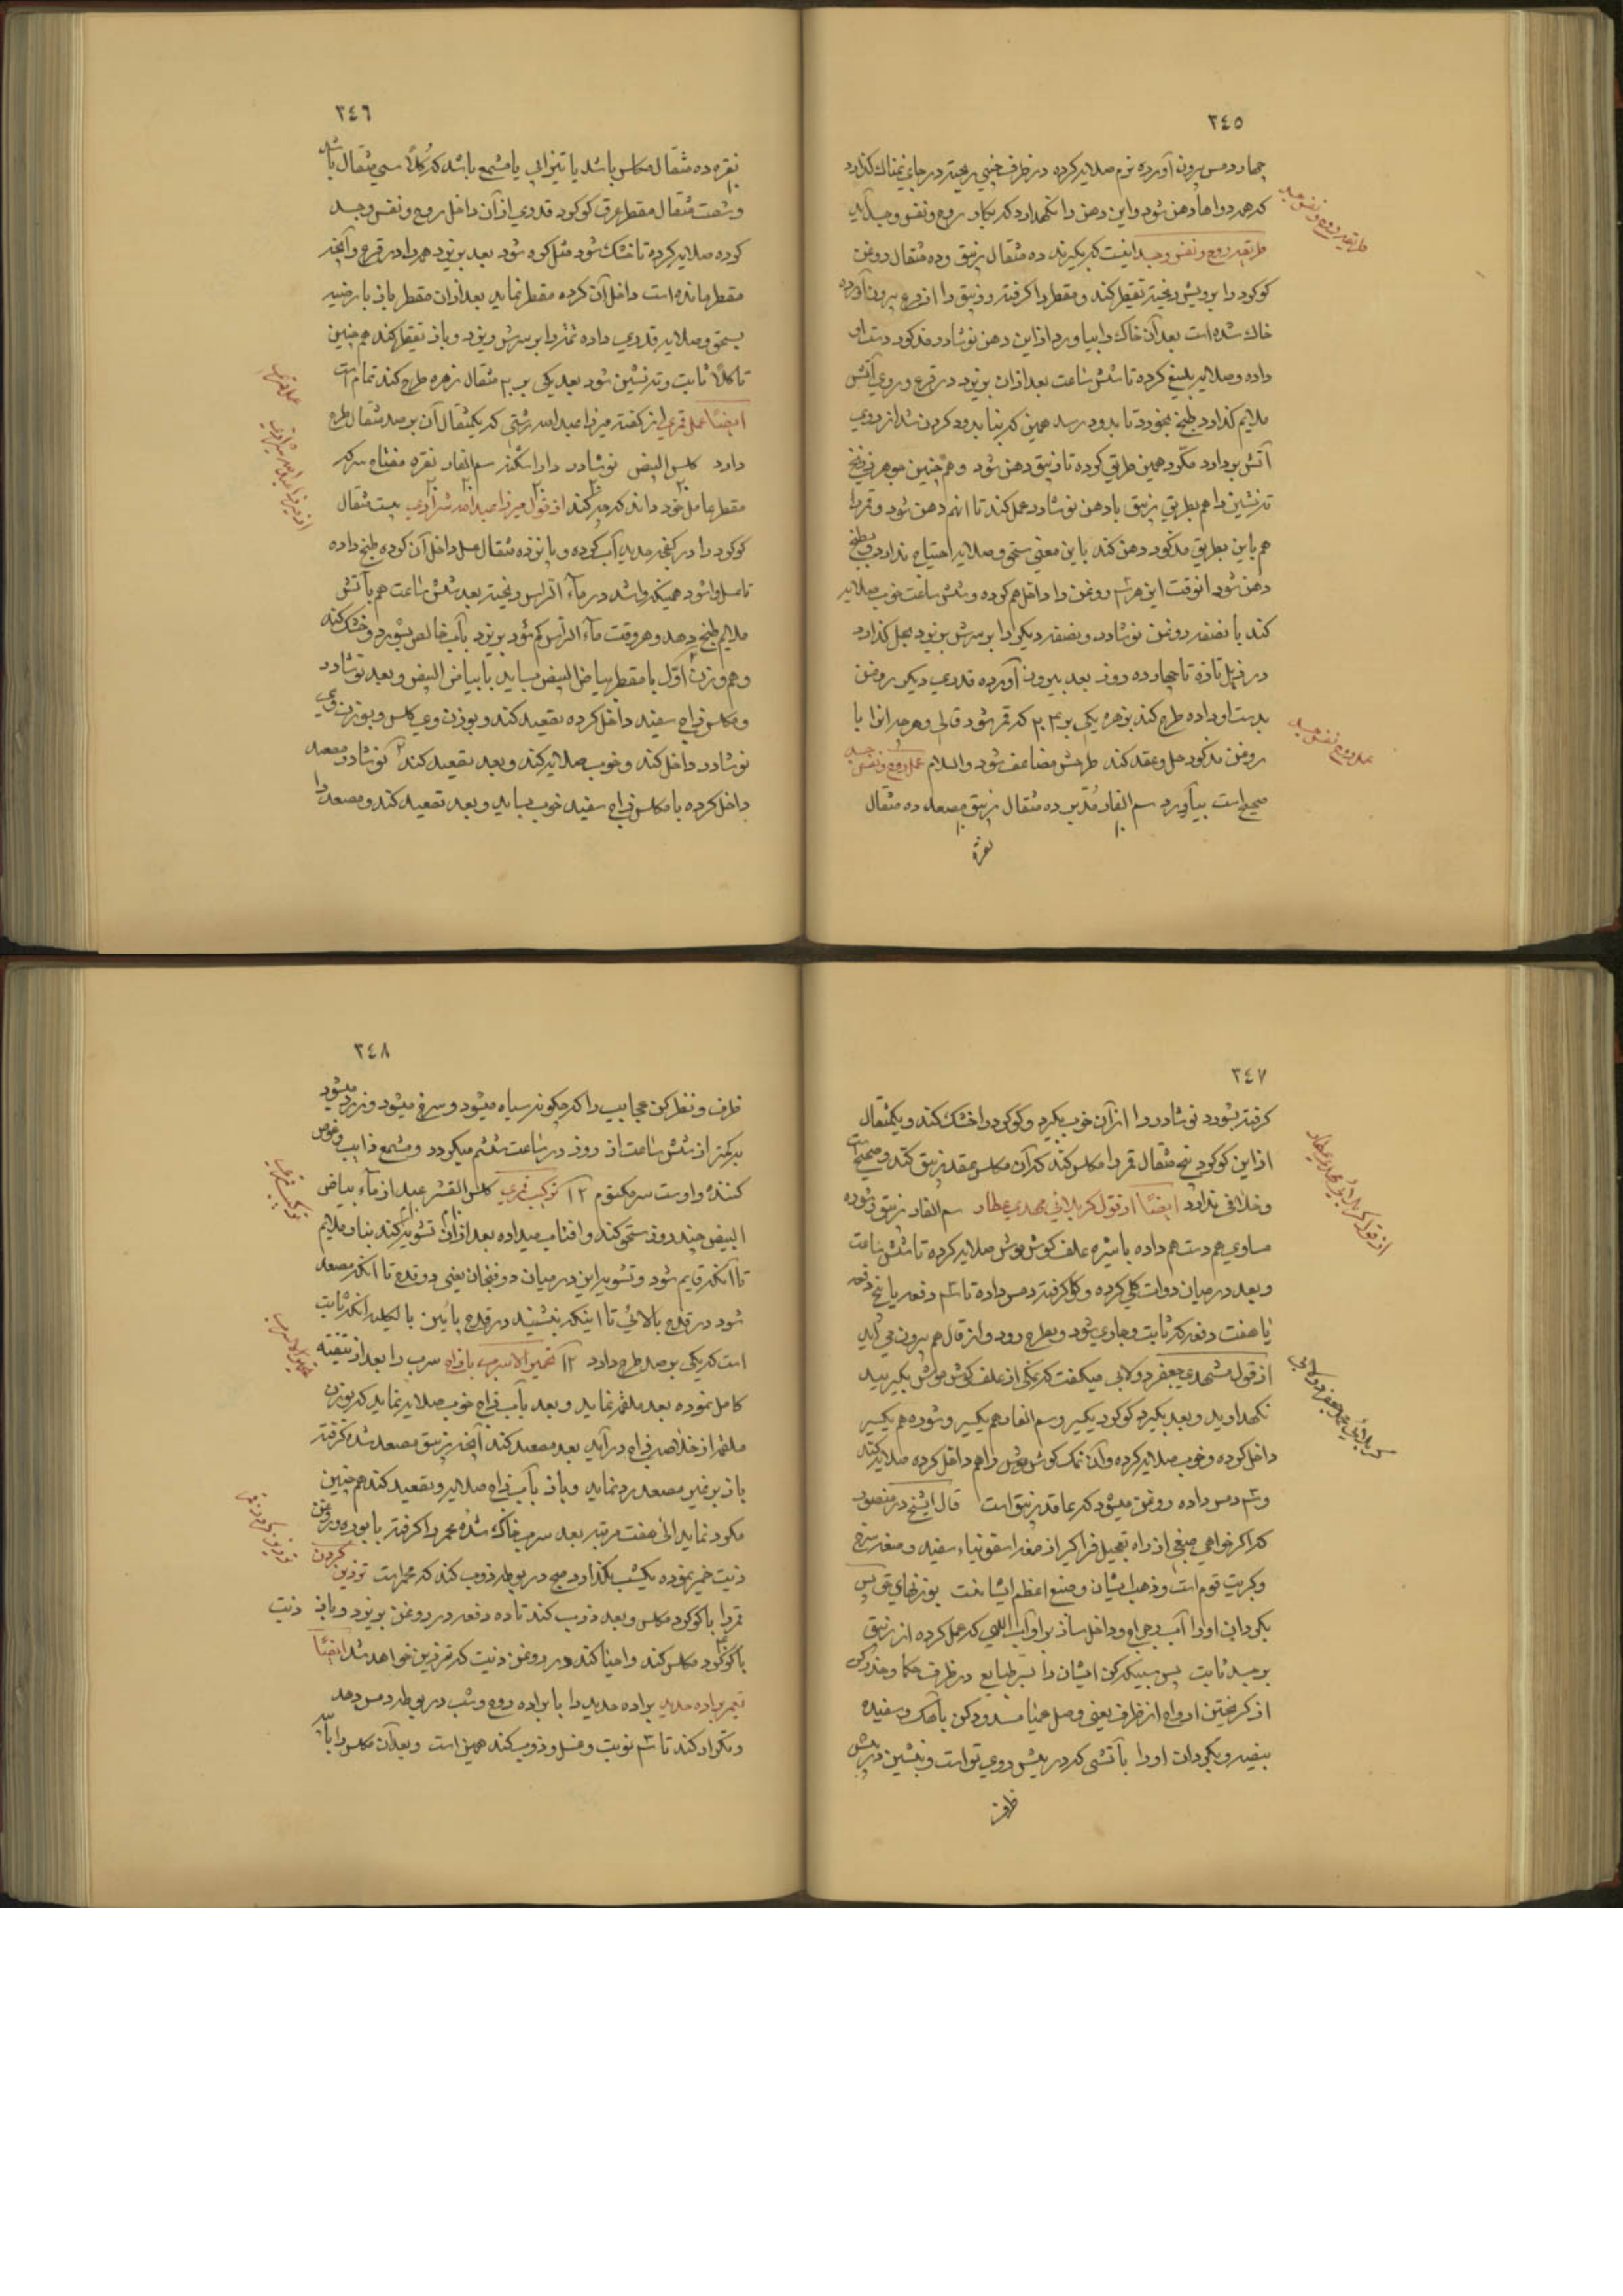 ٣٤٥
چهار دمس بیرون آورده نرم صلایه کرده در ظرف چینی ریخته در جای نمناک گذارد
که همه دواها دهن شود و این دهن را نگهدارد که بکار روح و نفس و جسد آید
طریقه روح و نفس و جسد اینست که بگیرند ده مثقال زیبق و ده مثقال روغن
گوگرد را برویش ریخته تقطیر کند و مقطر را گرفته و زیبق را از قرع بیرون آورده
خاک شده است بعد آن خاک را بیاورد از این دهن نوشادر مذکور دست او
داده و صلایه بلیغ کرده تا شش ساعت بعد از ان بریزد در قرع و روی آتش
ملایم گذارد طبخ بخورد تا بدود رسد همین که بنا بدود کردن شد از روی
آتش بردارد مکرر همین طریق کرده تا زیبق دهن شود و همچنین جوهر زرنیخ
ته نشین را هم بطریق زیبق با دهن نوشادر عمل کند تا انهم دهن شود و قمر را
هم باین بطریق مذکور دهن کند باین معنی سحق و صلایه احتیاج ندارد بطبخ
دهن شود انوقت این هر سه روغن را داخل هم کرده و شش ساعت خوب صلایه
کند با نصفه روغن نوشادر و نصفه دیگر را بر سرش بریزد بحل گذارد
در زبل تازه تا چهارده روز بعد بیرون آورده قدری دیگر روغن
بدست او داده طرح کند بزهره یکی بر ٣٠ که قمر شود قالی و هر چه انرا با
روغن مذکور حل و عقد کند طرحش مضاعف شود والسلام عمل روح و نفس جسد
صحیح است بیاورد سم الفار مدبر ده مثقال زیبق مصعد ده مثقال
نقره
طریقه روح و نفس و جسد
عمل روح نفس جسد
٣٤٦
نقره ده مثقال مکلس باشد یا تیزابی یا مشمع باشد که کلاً سی مثقال باشد
و شصت مثقال مقطر عرق گوگرد قدری از آن داخل روح و نفس و جسد
کرده صلایه کرده تا خشک شود مثل کوه شود بعد بریزد همه را در قرع و آنچه
مقطر مانده است داخل آن کرده مقطر نماید بعد از ان مقطر باز بارضیه
بسحق و صلایه قدری داده تتمه را بر سرش ریزد و باز تقطیر کند همچنین
تا کلاً ثابت و ته نشین شود بعد یکی بر ٣٠ مثقال زهره طرح کند تمام است
ایضاً عمل قمری از گفته میرزا عبدالله رشتی که یکمثقال آن بر صد مثقال طرح
دارد کلس البیض نوشادر داراشکنه سم الفار نقره مفتاح سرکه
مقطر عامل خود داند که چه کند از قول میرزا عبدالله شیرازی بیست مثقال
گوگرد را در کفچه حدید آب کرده و پانزده مثقال عسل داخل آن کرده طبخ داده
تا عسل وا شود همینکه وا شد در ماء الرأس ریخته بعد شش ساعت هم بآتش
ملایم طبخ دهد و هر وقت ماء الرأس کم شود بریزد بآب خالص بشورد و خشک کند
و هم وزن اول با مقطر بیاض البیض بساید یا بیاض البیض و بعد نوشادر
و مکلس زاج سفید داخل کرده تصعید کند و بوزن وی کلس و بوزن وی
نوشادر داخل کند و خوب صلایه کند و بعد تصعید کند نوشادر مصعد
داخل کرده با مکلس زاج سفید خوب بساید و بعد تصعید کند و مصعد را
عمل قمری
از میرزا عبدالله شیرازی
٣٤٧
گرفته بشورد نوشادر را از آن خوب بگیرد و گوگرد را خشک کند و یکمثقال
از این گوگرد پنج مثقال قمر را مکلس کند که آن مکلس عقد زیبق کند و صحیح است
و خلافی ندارد ایضاً از قول کربلائی مهدی عطار سم الفار زیبق و شوره
مساوی هم دست هم داده با شیره علف گوش موش صلایه کرده تا شش ساعت
و بعد در میان دوات گلی کرده و گل گرفته دمس داده تا سه دفعه یا پنج دفعه
یا هفت دفعه که ثابت و جاری شود و بطرح رود و از قال هم بیرون می آید
از قول مشهدی جعفر دولابی میگفت که نمکی از علف گوش موش بگیرید
نگهدارید و بعد بگیرد گوگرد یکسیر و سم الفار هم یکسیر و شوره هم یکسیر
داخل کرده و خوب صلایه کرده و آن نمک گوش موش را هم داخل کرده صلایه کند
و سه دمس داده روغن میشود که عاقد زیبق است قال الشیخ در منصور
که اگر خواهی صبغی از راه تعجیل فراگیر از صغد اسقونیاء سفید و صغد سرخ
و کبریت قوم است و ذهب ایشان و صبغ اعظم ایشانست بوزنهای قوی پس
بگردان او را آب رجراج و داخل ساز بر او آب الهی که عمل کرده از زیبق
بر جسد ثابت پس سبیکه کن ایشان را بسر طبایع در ظرف حکما و حذر کن
از گریختن ارواح از ظرف یعنی وصل عمیا مسدود کن باهک و سفیده
بیضه و بگردان او را بآتشی که در پیش روی تو است و بنشین در پیش
ظرف
از قول کربلائی مهدی عطار
کربلائی محمد جعفر دولابی
٣٤٨
ظرف و نظر کن عجایب را که چگونه سیاه میشود و سرخ میشود و زرد میشود
بدکمتر از شش ساعت از روز در ساعت ششم میگردد و مشمع ذایب و غوص
کننده و اوست سر مکتوم ١٢ ترکیب قمری کلس القشر عبد از ماء بیاض
البیض چند روز سحق کند و افتاب میداده بعد از ان تشویه کند بنار ملایم
تا آنکه قایم شود و تشویه این در میان دو فنجان یعنی دو قدح تا آنکه مصعد
شود در قدح بالائی تا اینکه بنشیند در قدح پائین بالکلیه آنکه ثابت
است که یکی بر صد طرح دارد ١٢ تحمیر الاسرب بازاج سرب را بعد از تنقیته
کامل نموده بعد ملغمه نماید و بعد بآب زاج خوب صلایه نماید که بوزن
ملغمه از خلاصه زاج درآید بعد مصعد کند آنچه زیبق مصعد شده گرفته
باز بر غیر مصعد رد نماید و باز بآب زاج صلایه و تصعید کند همچنین
مکرر نماید الی هفت مرتبه بعد سرب خاک شده محمر را گرفته با بوره و روغن
زیت خمیر نموده یکشب بگذارد صبح در بوطه ذوب کند که محمر است تزدین کردن
قمر را با گوگرد مکلس و بعد ذوب کند تا ده دفعه در روغن بریزد و باز زیت
با گوگرد مکلس کند و احیا کند در روغن زیت که قمر رزین خواهد شد ایضاً
تعمیر براده حدید براده حدید را با براده روح و شب در بوطه دمس دهد
و تکرار کند تا سه نوبت و غسل و ذوب کند همین است و بعد آن مکلس را با
ترکیب قمری
تحمیر الاسرب